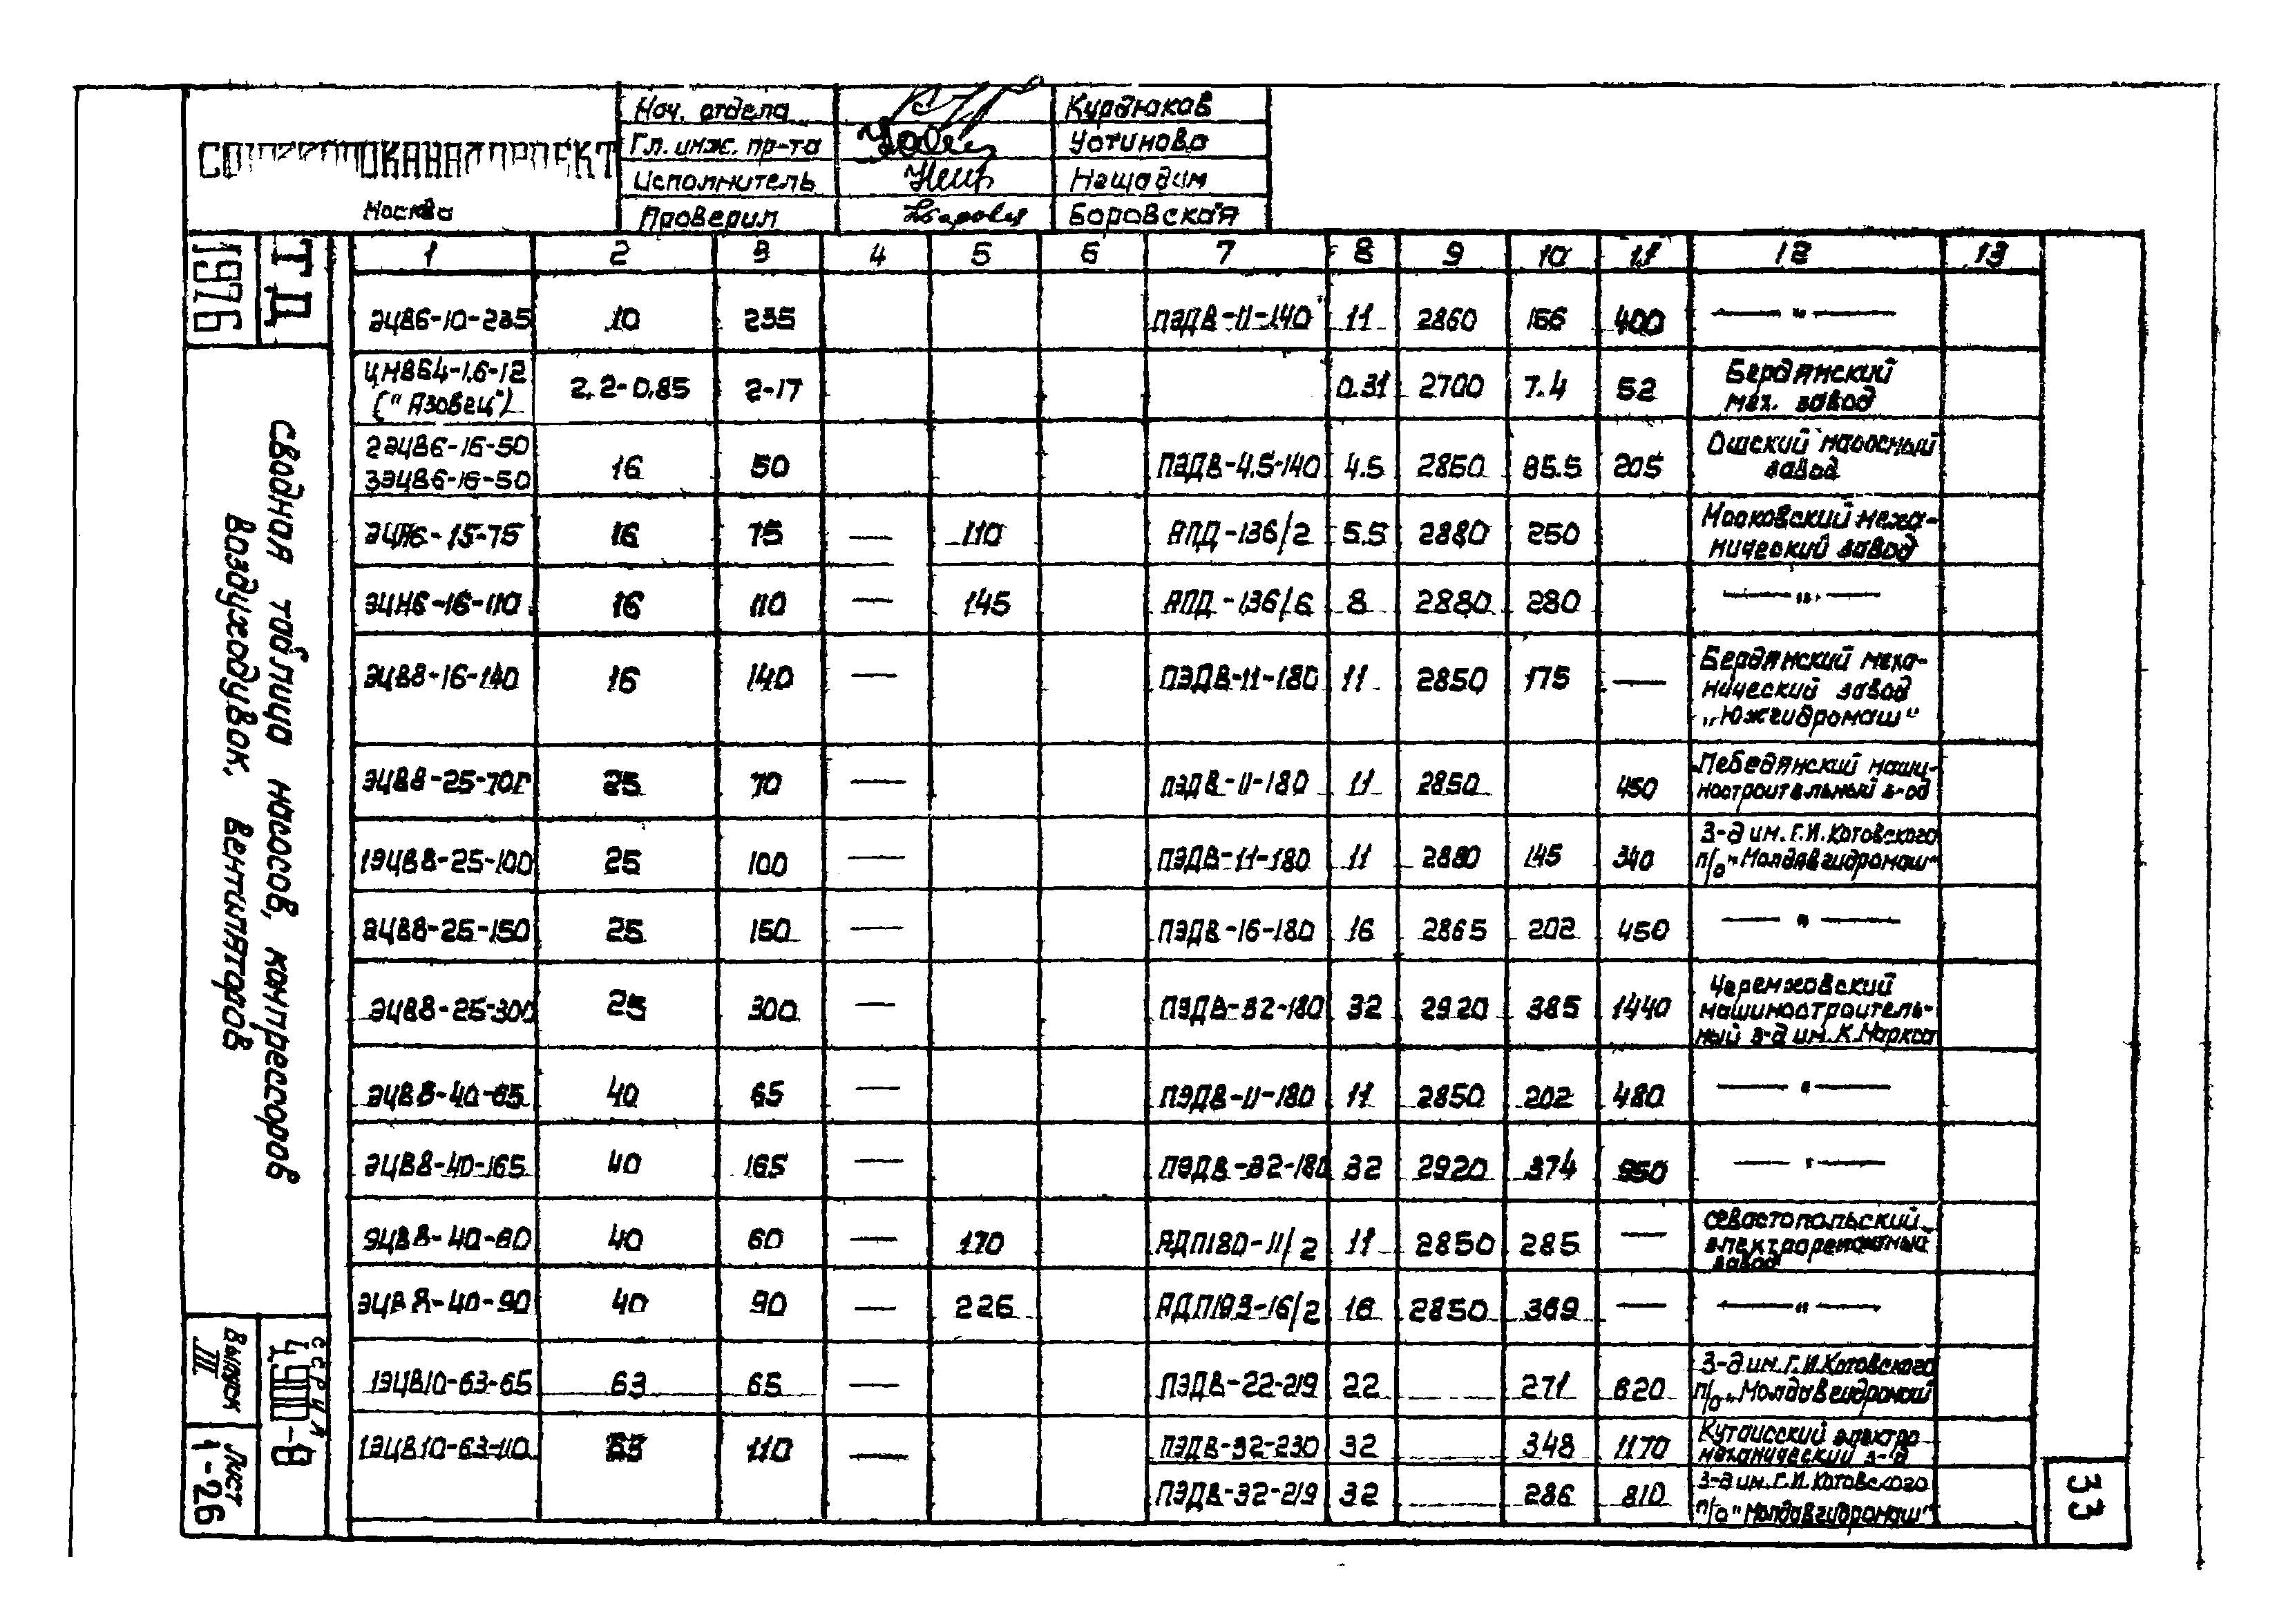 СОЮЗВОДОКАНАЛПРОЕКТ
Москва
Нач. отдела Курдюков
Гл. инж. пр-та Устинова
Исполнитель Нешадим
Проверил Боровская
ТД
1976
Сводная таблица насосов, компрессоров
воздуходувок, вентиляторов
серия
4.900-8
Выпуск
III
Лист
1-26
1 2 3 4 5 6 7 8 9 10 11 12 13
ЭЦВ6-10-235 10 235 ПЭДВ-11-140 11 2860 166 400 — " —
ЦНВБ4-1.6-12
("Азовец") 2.2-0.85 2-17 0.31 2700 7.4 52 Бердянский
мех. завод
2ЭЦВ6-16-50
3ЭЦВ6-16-50 16 50 ПЭДВ-4.5-140 4.5 2850 85.5 205 Ошский насосный
завод
ЭЦН6-15-75 16 75 — 110 АПД-136/2 5.5 2880 250 Московский меха-
нический завод
ЭЦН6-16-110 16 110 — 145 АПД-136/6 8 2880 280 — " —
ЭЦВ8-16-140 16 140 — ПЭДВ-11-180 11 2850 175 — Бердянский меха-
нический завод
„Южгидромаш"
ЭЦВ8-25-70Г 25 70 — ПЭДВ-11-180 11 2850 450 Лебедянский маши-
ностроительный з-од
1ЭЦВ8-25-100 25 100 — ПЭДВ-11-180 11 2880 145 340 З-д им. Г.И. Котовского
п/о „Молдавгидромаш"
ЭЦВ8-25-150 25 150 — ПЭДВ-16-180 16 2865 202 450 — " —
ЭЦВ8-25-300 25 300 — ПЭДВ-32-180 32 2920 385 1440 Черемховский
машиностроитель-
ный з-д им. К. Маркса
ЭЦВ8-40-65 40 65 — ПЭДВ-11-180 11 2850 202 480 — " —
ЭЦВ8-40-165 40 165 — ПЭДВ-32-180 32 2920 374 950 — " —
ЭЦВ8-40-60 40 60 — 170 АДП180-11/2 11 2850 285 — Севастопольский
электроремонтный
завод
ЭЦВ8-40-90 40 90 — 226 АДП193-16/2 16 2850 369 — — " —
1ЭЦВ10-63-65 63 65 — ПЭДВ-22-219 22 271 620 З-д им. Г.И. Котовского
п/о „Молдавгидромаш
1ЭЦВ10-63-110 63 110 — ПЭДВ-32-230 32 348 1170 Кутаисский электро
механический з-д
ПЭДВ-32-219 32 286 810 З-д им. Г.И. Котовского
п/о "Молдавгидромаш"
33